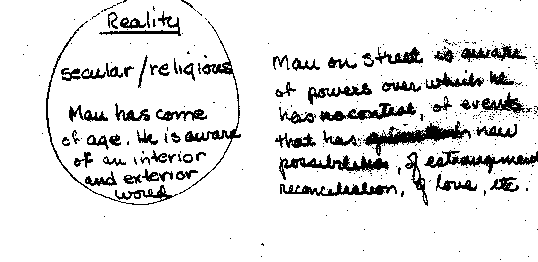 Reality
secular/religious
Man has come
of age. He is aware
of an interior
and exterior
world
Man on street is aware
of powers over which he
has no control, of events
that has new
possibilities, of estrangement
reconciliation, of love, etc.